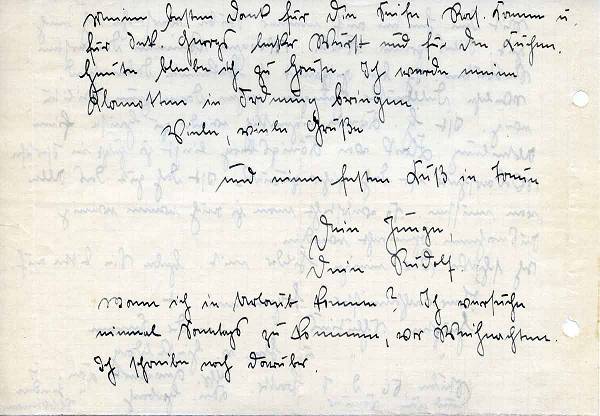 meinen besten Dank für die Seife, Ras. Kamm u.
für Dat. Georgs leckere Wurst und für den Kuchen.
Heute bleibe ich zu Hause. Ich werde meine
Klamotten in Ordnung bringen
Viele, viele Grüße
und einen festen Kuß in
Dein Junge,
Dein Rudolf.
Wann ich in Urlaub komme? Ich versuche
einmal Sonntags zu kommen, vor Weihnachten.
Ich schreibe noch darüber.